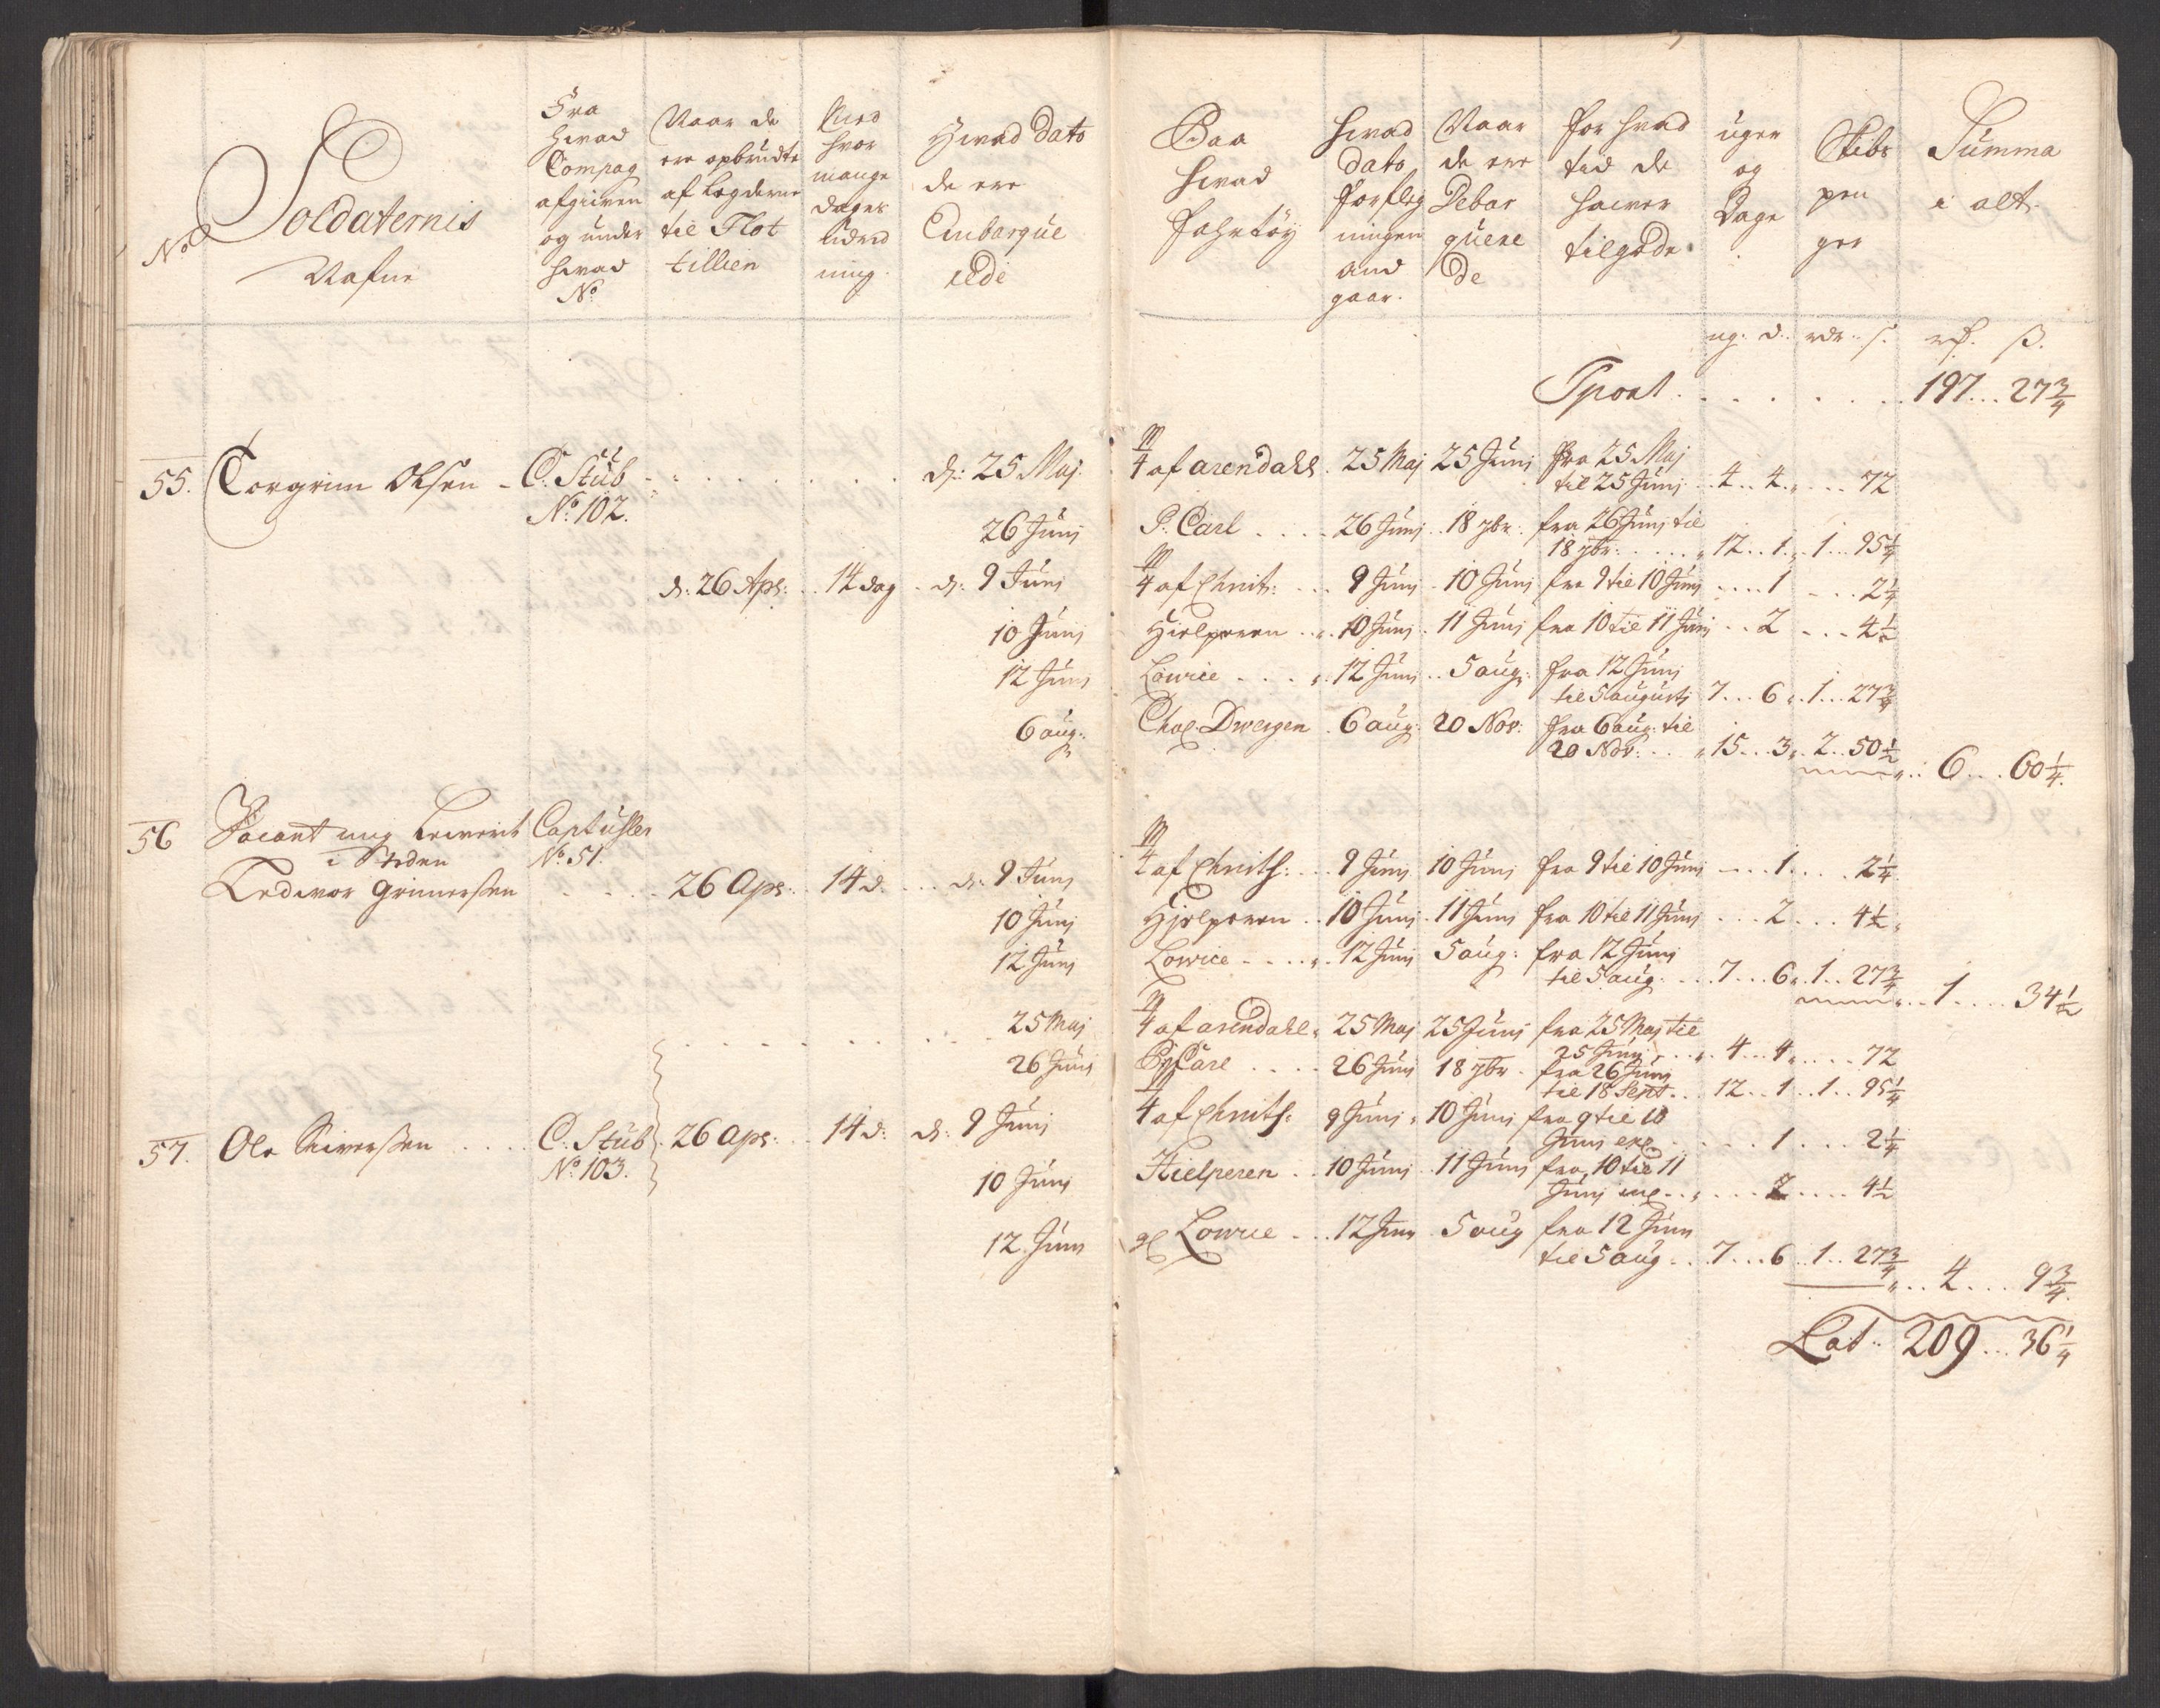 No
Soldaternis
Nafne
Fra
hvad
Compag
afgiven
og under
hvad
No
Naar de
ere opbrudte
af Legderne
til Flot
tillien
hvor
mange
dages
udred
ning.
Hvad Dato
de ere
Embarque
rede
Paa
hvad
fahrtöy
hvad
dato
forpleg
ningen
and
gaar.
Naar
de ere
Debar
quere
de
for hvad
tid de
hawer
tilgode
uger
og
Dage
Skibs
pen
ger
Summa
i alt
ug. d. rdr. s. rf. ß.
Tport . . . . . . . 197...27 3/4
55. Torgrim Olsen - C. Stüb - . . . . . . . d: 25 Maj. 4 af arendahl. 25 Maj 25 Junj fra 25 Maj
No. 102. til 25 Junj ..4..4.....72
26 Junj P. Carl .... 26 Junj .. 18 7br. fra 26 Junj til
18 7br. .... 12..1..1...95 1/4
d: 26 Apr: .. 14 dag . d: 9 Junj 4 af Christ: ... 9 Junj . 10 Junj fra 9 til 10 Junj ....1 ....2 1/4
10 Junj Hielperen ... 10 Junj . 11 Junj fra 10 til 11 Junj ..2 ....4 1/2
12 Junj Lowice .... 12 Junj .. 5 aug: fra 12 Junj
til 5 augusti 7...6..1...27 3/4
6 aug: Chal. Dwergen . 6 aug: 20 Nov: fra 6 aug: til
20 Nov: ... 15...3..2..50 1/2 ... 6....60 1/4.
56 Vacant nuy Leverit Capt üsler
i Steden No. 51.
Tedwor Grimersen . . . . 26 Apr: .. 14 d: ... d: 9 Junj 4 af Christs: ... 9 Junj 10 Junj fra 9 til 10 Junj ....1.....2 1/4
10 Junj Hjelperen .. 10 Junj . 11 Junj fra 10 til 11 Junj ...2....4 1/2
12 Junj Lowice .... 12 Junj 5 aug: fra 12 Junj
til 5 aug. ... 7...6..1..27 3/4 ...1....34 1/2
. . . . . . . . 25 Maj 4 af arendahl. 25 Maj 25 Junj fra 25 Maj til
25 Junj .... 4...4.....72
26 Junj P. Carl .... 26 Junj 18 7br. fra 26 Junj
til 18 Sept... 12..1..1..95 1/4
57. Ole Siwersen .... C. Stüb. 26 apr: .. 14 d: d: 9 Junj 4 af Christs: 9 Junj . 10 Junj fra 9 til 10
No. 103. Junj exp .....1....2 1/4
10 Junj Hielperen .. 10 Junj .. 11 Junj fra 10 til 11
Junj .....2.....4 1/2
12 Junj Lowice ... 12 Junj 5 aug fra 12 Junj
til 5 aug. .. 7...6..1..27 3/4 ... 4....9 3/4
Lat.. 209...36 1/4